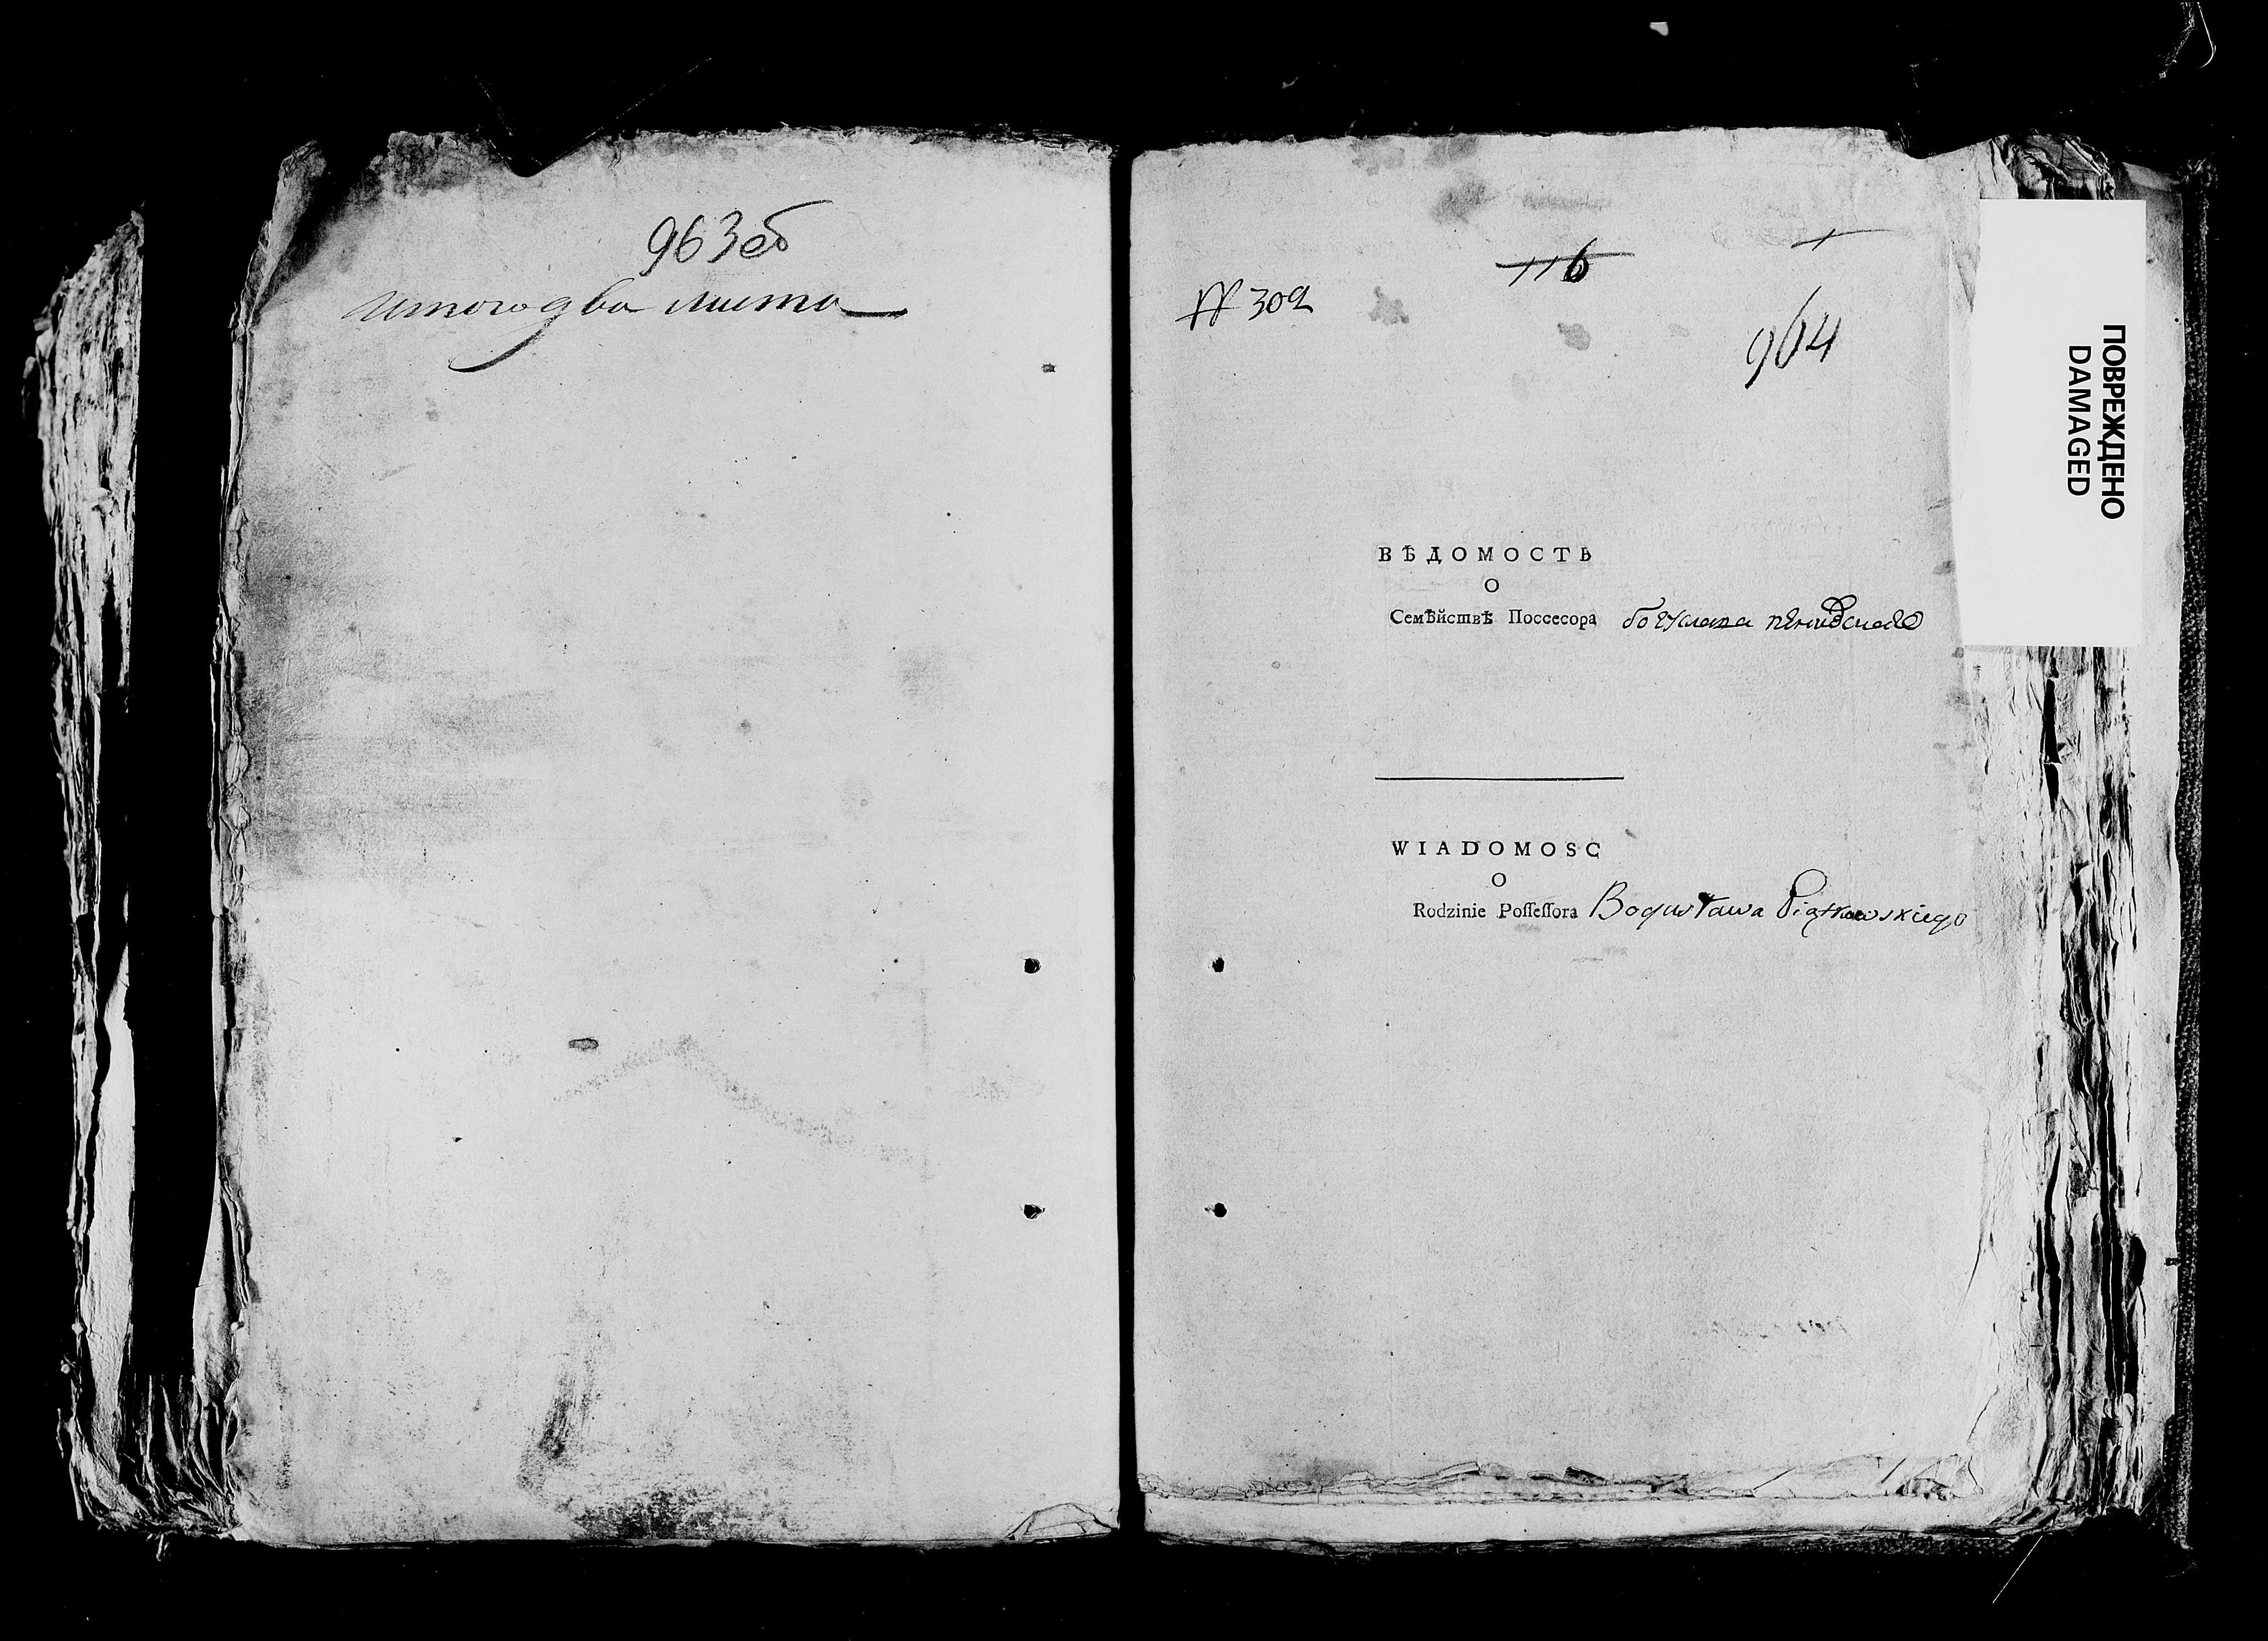 963об
итого два листа
№ 302
116
964
ВѢДОМОСТЬ
О
Семѣйствѣ Поссесора богуслава
WIADOMOSC
O
Rodzinie Poſſeſſora Bogusława Piątkowskiego
ПОВРЕЖДЕНО
DAMAGED